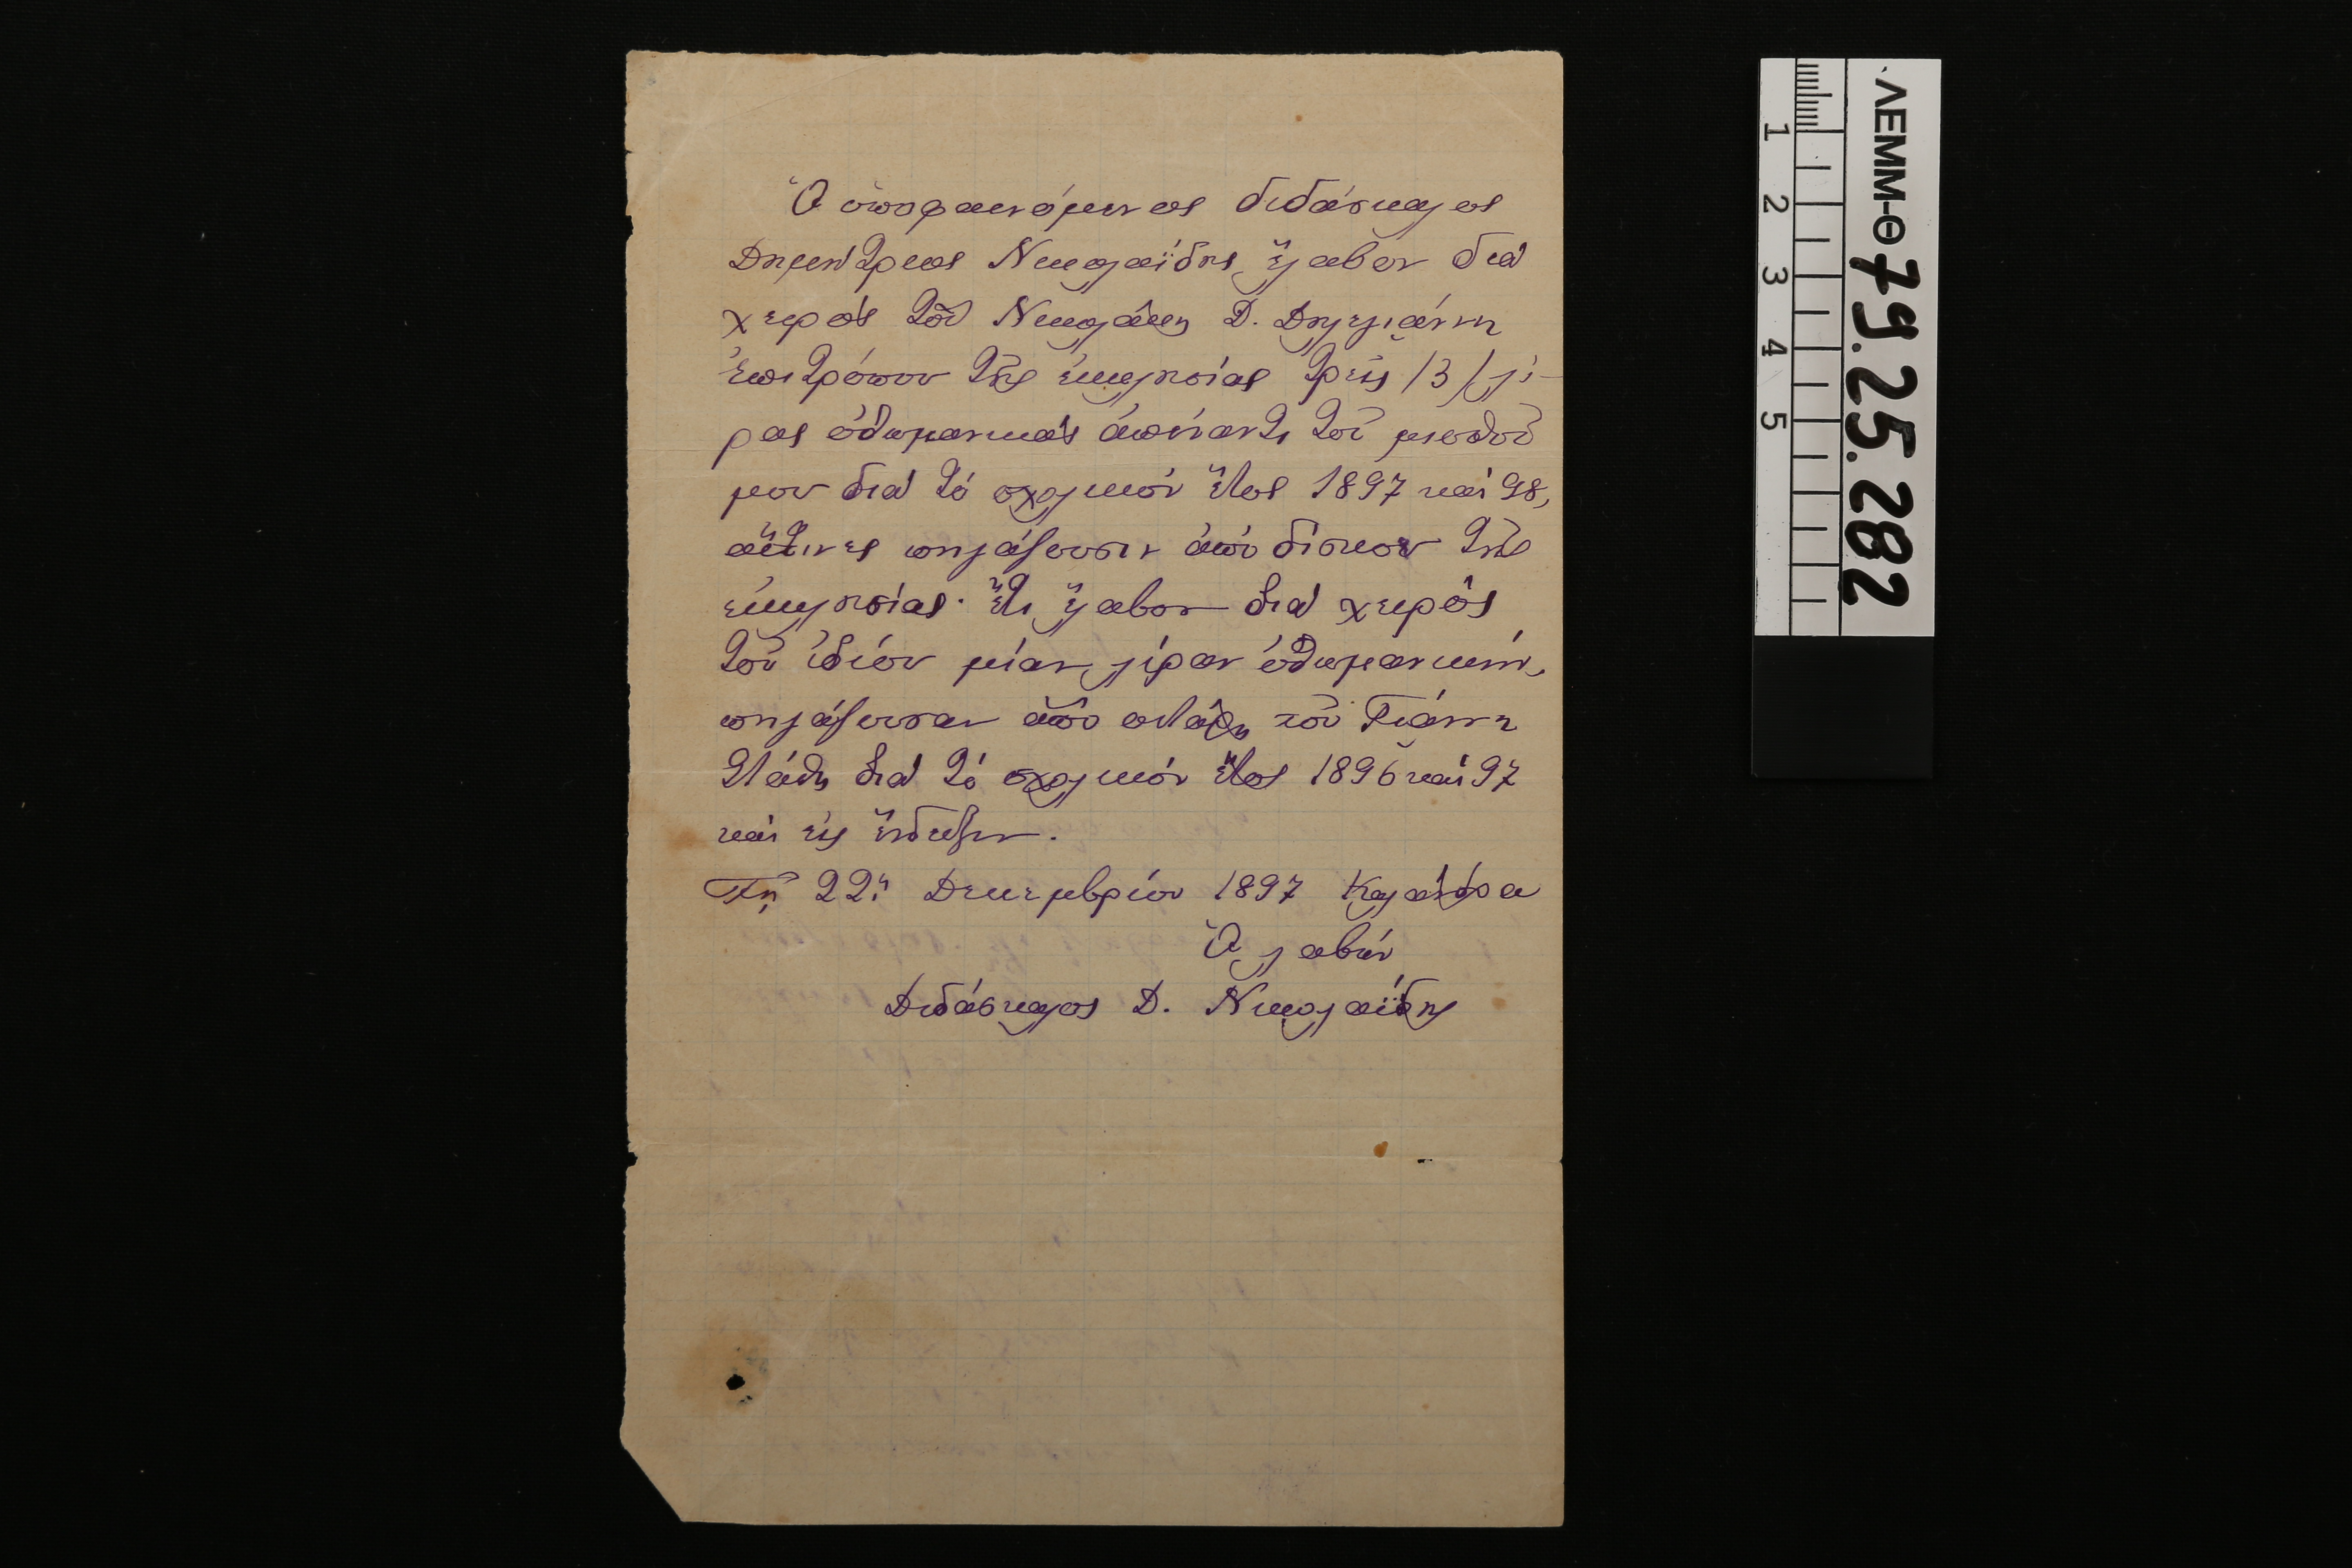 Ὁ ὑποφαινόμενος διδάσκαλος
Δημήτριος Νικολαΐδης ἔλαβον διὰ
χειρὸς τοῦ Νικολάκη Δ. Δηλεγιάννη
ἐπιτρόπου τῆς ἐκκλησίας τρεῖς /3/ λί-
ρας ὀθωμανικὰς ἀπέναντι τοῦ μισθοῦ
μου διὰ τὸ σχολικὸν ἔτος 1897 καὶ 98,
αἵτινες πηγάζουσιν ἀπὸ δίσκον τῆς
ἐκκλησίας. ἔτι ἔλαβον διὰ χειρὸς
τοῦ ἰδίου μίαν λίραν ὀθωμανικήν,
πηγάζουσαν ἀπὸ τοῦ Γιάννη
Στάθη διὰ τὸ σχολικὸν ἔτος 1896 καὶ 97
καὶ εἰς ἔνδειξιν.
Τῇ 22ᾳ Δεκεμβρίου 1897
Ὁ λαβών
Διδάσκαλος Δ. Νικολαΐδης
ΛΕΜΜ-Θ 79.25.282
1
2
3
4
5